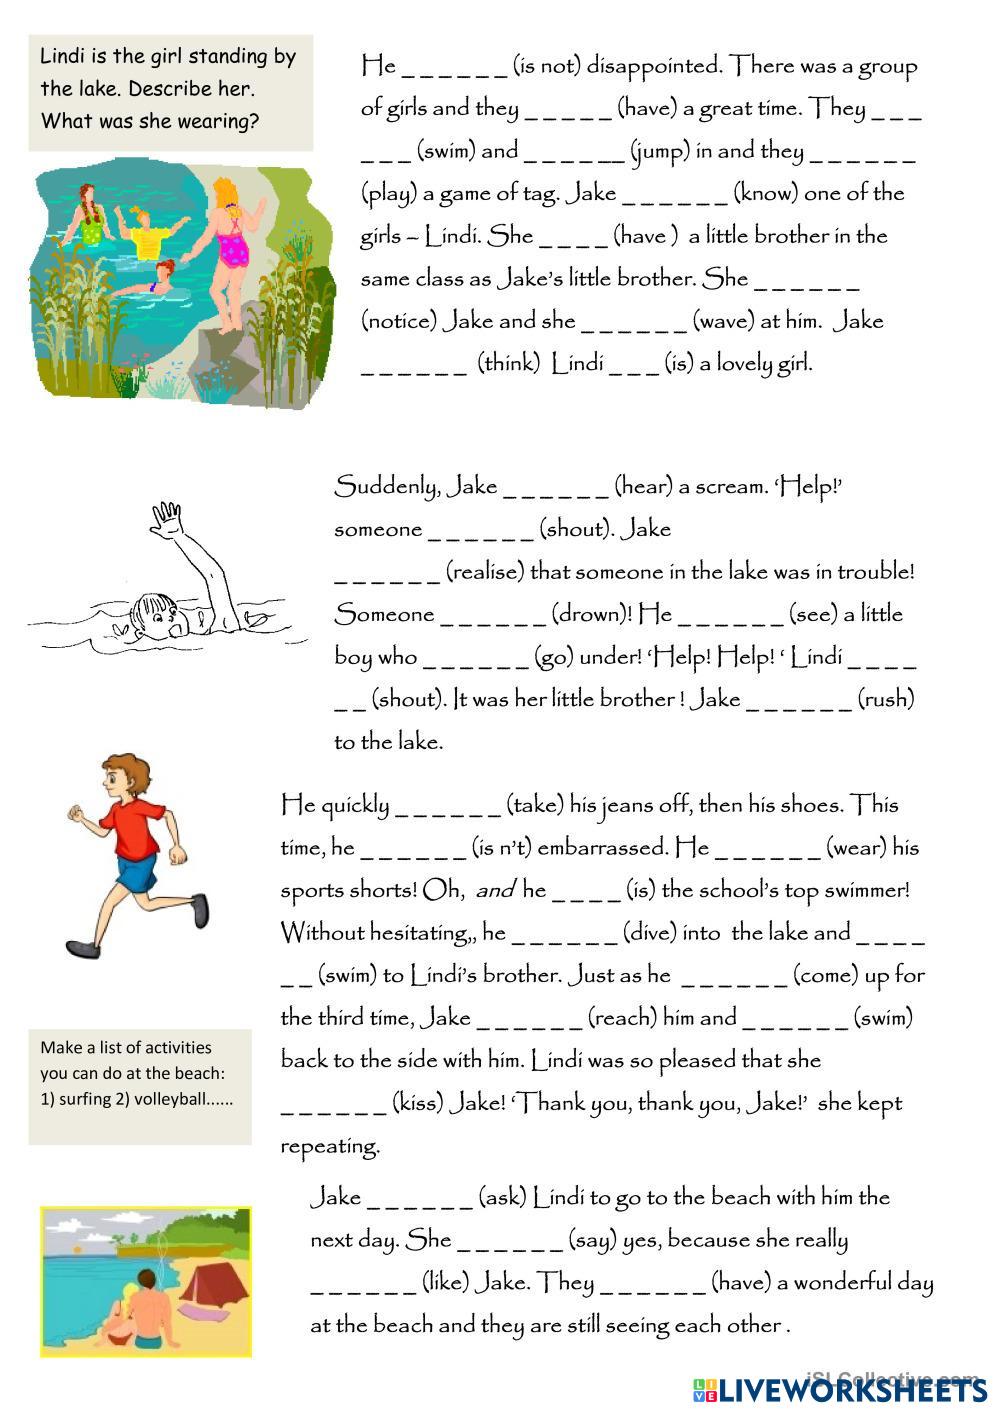 Lindi is the girl standing by
the lake. Describe her.
What was she wearing?
He _ _ _ _ _ _ (is not) disappointed. There was a group
of girls and they _ _ _ _ _ (have) a great time. They _ _ _
_ _ _ (swim) and _ _ _ _ _ _ (jump) in and they _ _ _ _ _ _
(play) a game of tag. Jake _ _ _ _ _ _ (know) one of the
girls – Lindi. She _ _ _ _ (have ) a little brother in the
same class as Jake's little brother. She _ _ _ _ _ _
(notice) Jake and she _ _ _ _ _ _ (wave) at him. Jake
_ _ _ _ _ _ (think) Lindi _ _ _ (is) a lovely girl.
Suddenly, Jake _ _ _ _ _ _ (hear) a scream. 'Help!'
someone _ _ _ _ _ _ (shout). Jake
_ _ _ _ _ _ (realise) that someone in the lake was in trouble!
Someone _ _ _ _ _ _ (drown)! He _ _ _ _ _ _ (see) a little
boy who _ _ _ _ _ _ (go) under! 'Help! Help! ' Lindi _ _ _ _
_ _ (shout). It was her little brother ! Jake _ _ _ _ _ _ (rush)
to the lake.
He quickly _ _ _ _ _ _ (take) his jeans off, then his shoes. This
time, he _ _ _ _ _ _ (is n't) embarrassed. He _ _ _ _ _ _ (wear) his
sports shorts! Oh, and he _ _ _ _ (is) the school's top swimmer!
Without hesitating,, he _ _ _ _ _ _ (dive) into the lake and _ _ _ _
_ _ (swim) to Lindi's brother. Just as he _ _ _ _ _ _ (come) up for
the third time, Jake _ _ _ _ _ _ (reach) him and _ _ _ _ _ _ (swim)
back to the side with him. Lindi was so pleased that she
_ _ _ _ _ _ (kiss) Jake! 'Thank you, thank you, Jake!' she kept
repeating.
Make a list of activities
you can do at the beach:
1) surfing 2) volleyball......
Jake _ _ _ _ _ _ (ask) Lindi to go to the beach with him the
next day. She _ _ _ _ _ _ (say) yes, because she really
_ _ _ _ _ _ (like) Jake. They _ _ _ _ _ _ (have) a wonderful day
at the beach and they are still seeing each other .
iSLCollective.com
LIVEWORKSHEETS